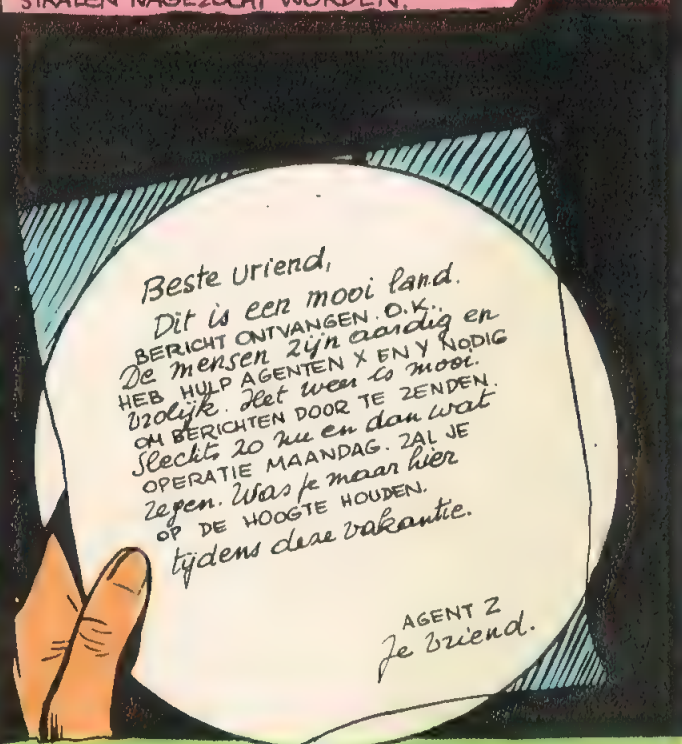 STRALEN NAGEZOCHT WORDEN.
Beste vriend,
Dit is een mooi land.
BERICHT ONTVANGEN. O.K.,
De mensen zijn aardig en
HEB HULP AGENTEN X EN Y NODIG
vrolijk. Het weer is mooi.
OM BERICHTEN DOOR TE ZENDEN.
Slechts zo nu en dan wat
OPERATIE MAANDAG. ZAL JE
regen. Was je maar hier
OP DE HOOGTE HOUDEN.
tijdens deze vakantie.
AGENT Z
Je vriend.